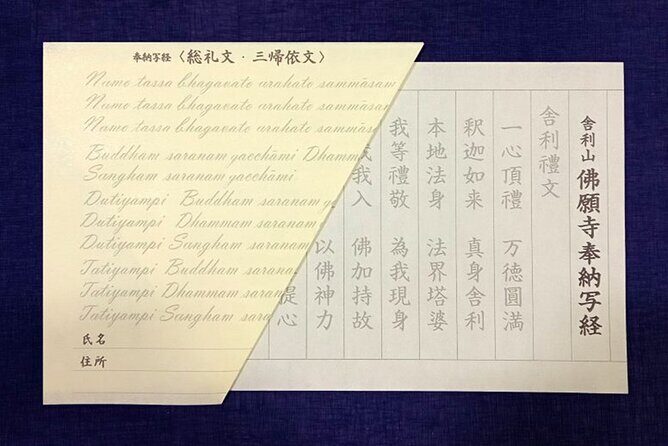 奉納写経〈総礼文・三帰依文〉
Namo tassa bhagavato arahato sammāsam
Namo tassa bhagavato arahato sammāsam
Namo tassa bhagavato arahato sammās
Buddham saranam gacchāmi Dhamm
Sangham saranam gacchāmi.
Dutiyampi Buddham saranam g
Dutiyampi Dhammam saranam
Dutiyampi Sangham saranam
Tatiyampi Buddham sarana
Tatiyampi Dhammam sarana
Tatiyampi Sangham sara
氏名
住所
舎利山 佛願寺奉納写経
舎利禮文
一心頂禮 万徳圓満
釈迦如来 真身舎利
本地法身 法界塔婆
我等禮敬 為我現身
我我入 佛加持故
以佛神力
提心